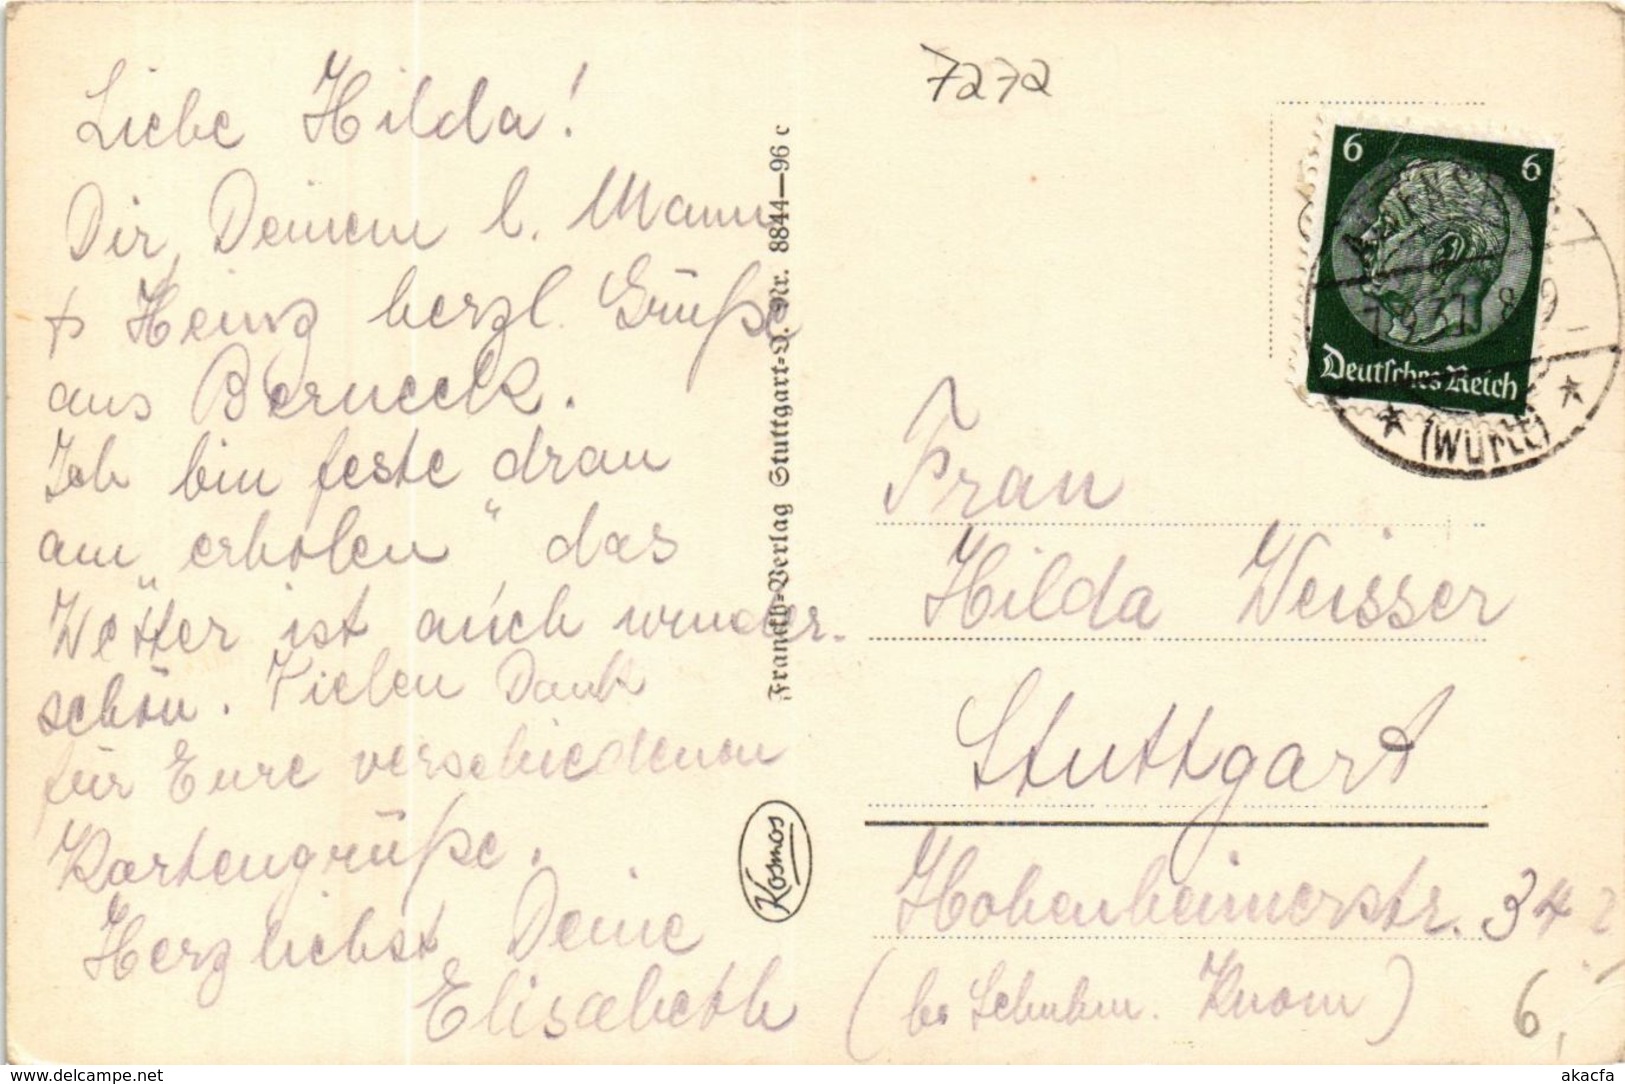 7272
Liebe Hilda!
Dir, Deinem l. Mann
+ Heinz herzl. Grüße
aus Berneck.
Ich bin feste dran
am "erholen" das
Wetter ist auch wunder-
schön. Vielen Dank
für Eure verschiedenen
Kartengrüße.
Herzlichst Deine
Elisabeth
Franckh-Verlag Stuttgart-O. Nr. 8844—96 c
Kosmos
6 6
Deutsches Reich
(Württ)
Frau
Hilda Weisser
Stuttgart
Hohenheimerstr. 34
(bei Schuhm. Knom)
6,
www.delcampe.net
akacfa